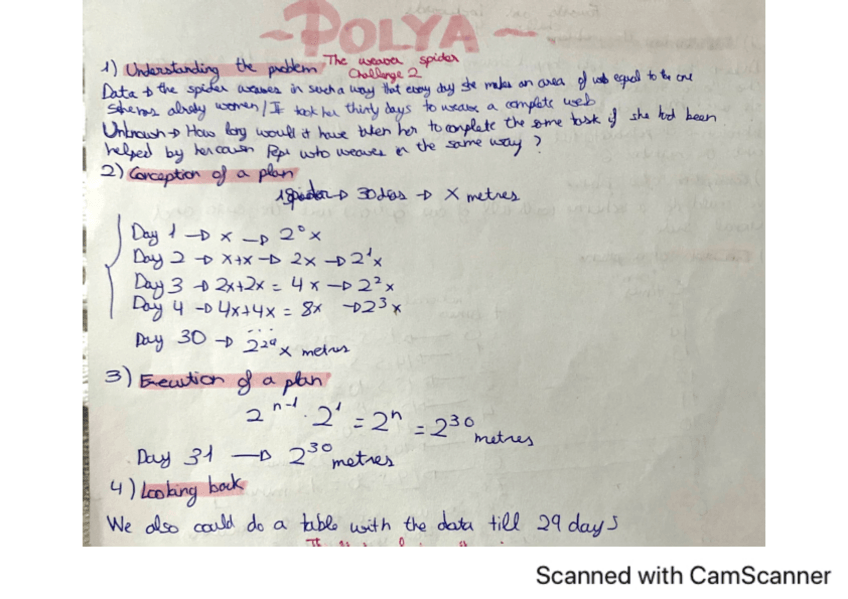 ~POLYA~
1) Understanding the problem The weaver spider
Challenge 2
Data → the spider weaves in such a way that every day she makes an area of web equal to the one
she has alredy women / It took her thirty days to weave a complete web
Unknown → How long would it have taken her to complete the same task if she had been
helped by her cousin Pepi who weaves in the same way ?
2) Conception of a plan
1 spider → 30 días → X metres
Day 1 → x → 2⁰x
Day 2 → x+x → 2x → 2¹x
Day 3 → 2x+2x = 4x → 2²x
Day 4 → 4x+4x = 8x → 2³x
...
Day 30 → 2²⁹x metres
3) Execution of a plan
2ⁿ⁻¹ · 2¹ = 2ⁿ = 2³⁰ metres
Day 31 → 2³⁰ metres
4) Looking back
We also could do a table with the data till 29 days
Scanned with CamScanner